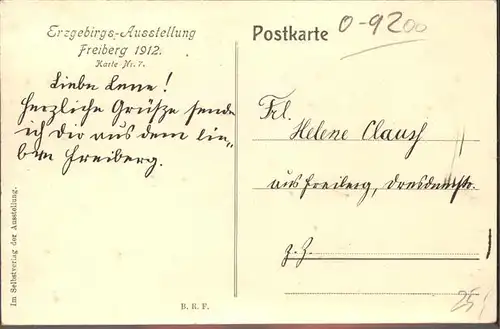 Erzgebirgs-Ausstellung
Freiberg 1912.
Karte Nr. 7.
Liebe Lene!
Herzliche Grüsze sende
ich Dir aus dem lie„
ben Freiberg.
Im Selbstverlag der Ausstellung.
B. R. F.
Postkarte
0-9200
Frl.
Helene Clauß
aus Freiberg, Dresdnerstr.
z. Z.
25